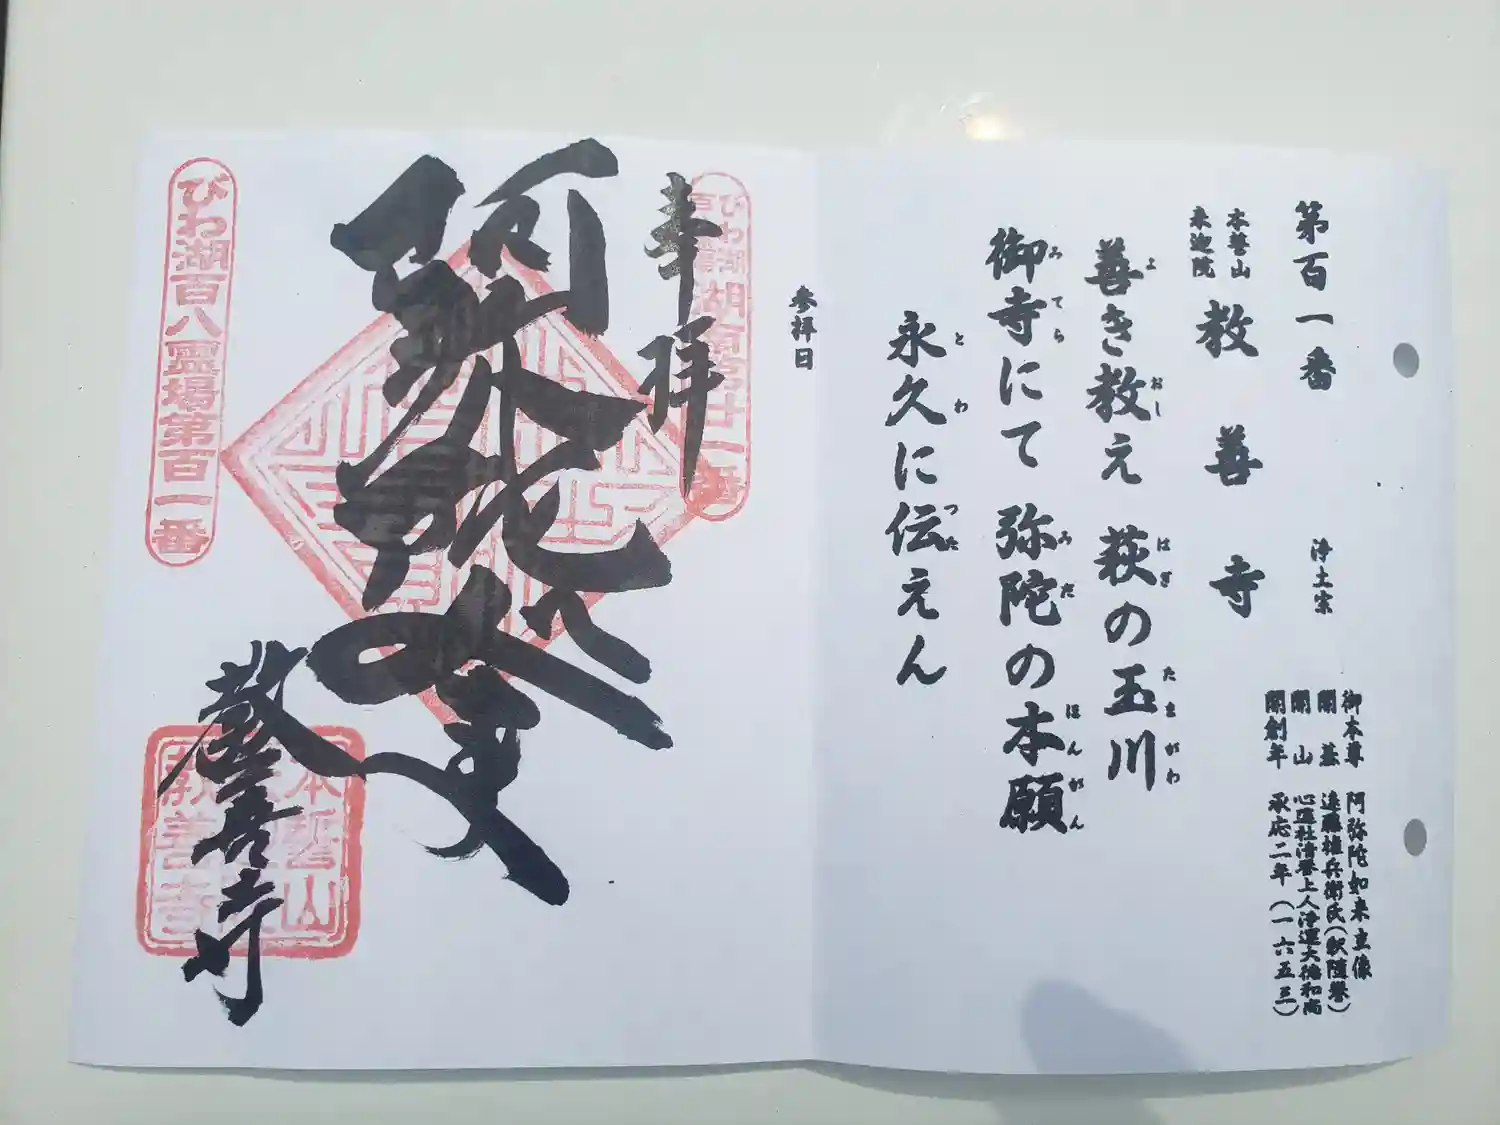 第百一番
浄土宗
本誓山
来迎院
教善寺
御本尊 阿弥陀如来立像
開基 遠藤権兵衛氏(釈随誉)
開山 心蓮社清誉上人浄運大徳和尚
開創年 承応二年(一六五三)
善き教え 萩の玉川
よ おし はぎ たまがわ
御寺にて 弥陀の本願
みてら みだ ほんがん
永久に伝えん
とわ つた
参拝日
奉拝
阿弥陀如来
教善寺
びわ湖百八霊場第百一番
本誓山
教善寺